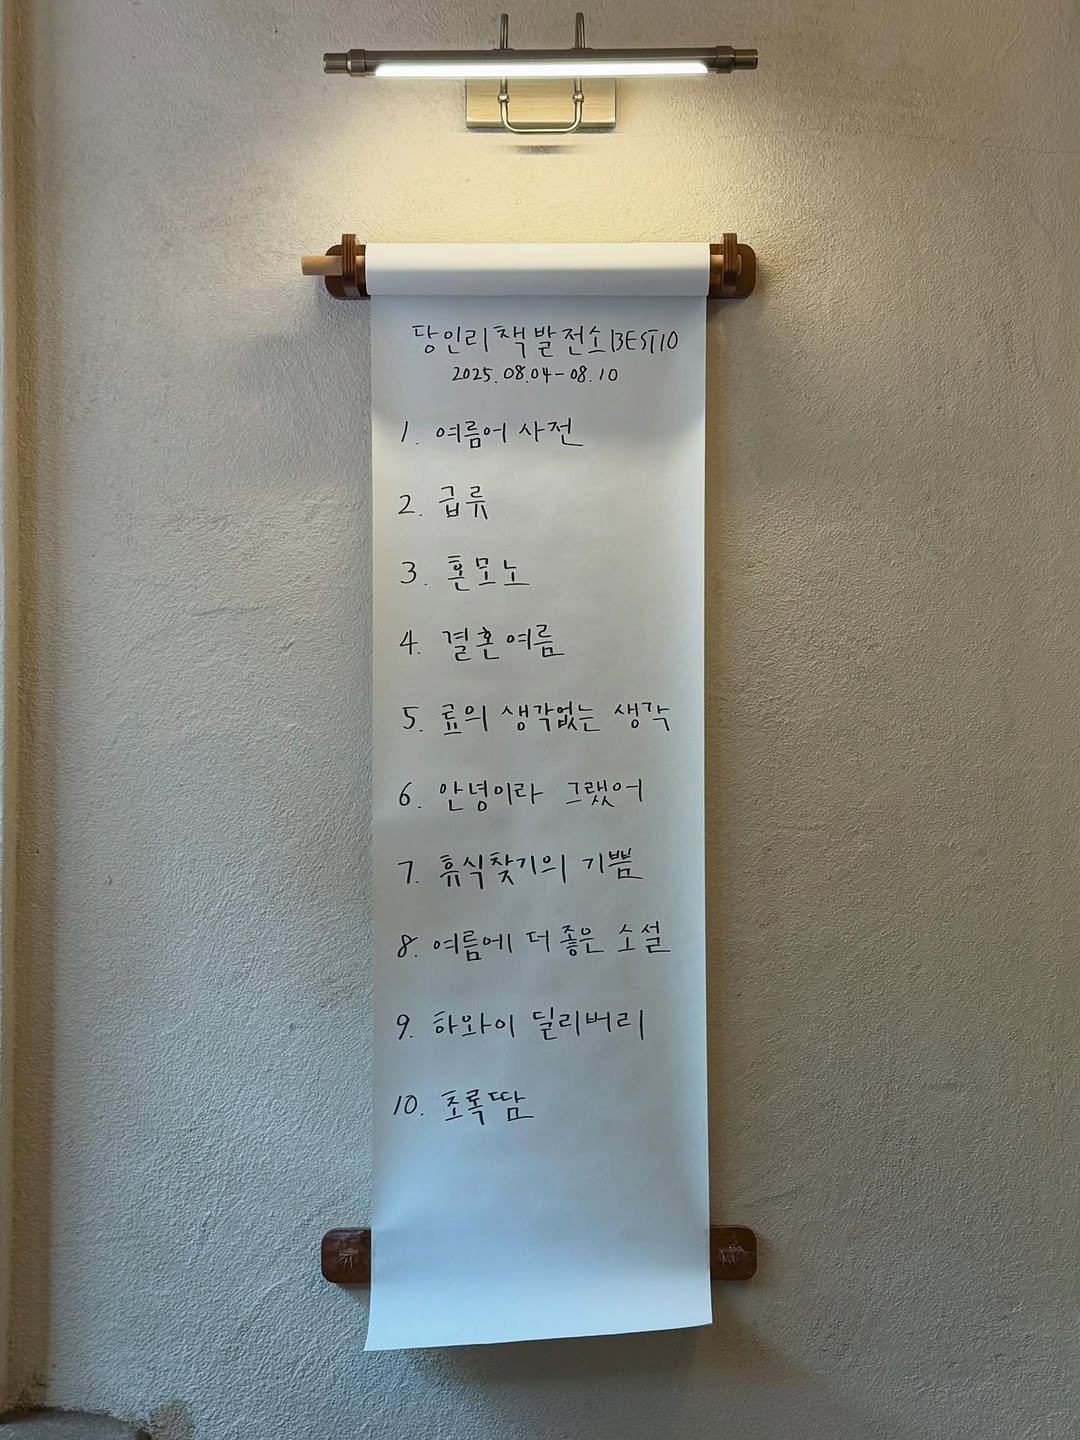 당인리책발전소 BEST10
2025.08.04-08.10
1. 여름어 사전
2. 급류
3. 혼모노
4. 결혼 여름
5. 료의 생각없는 생각
6. 안녕이라 그랬어
7. 휴식찾기의 기쁨
8. 여름에 더 좋은 소설
9. 하와이 딜리버리
10. 초록땀